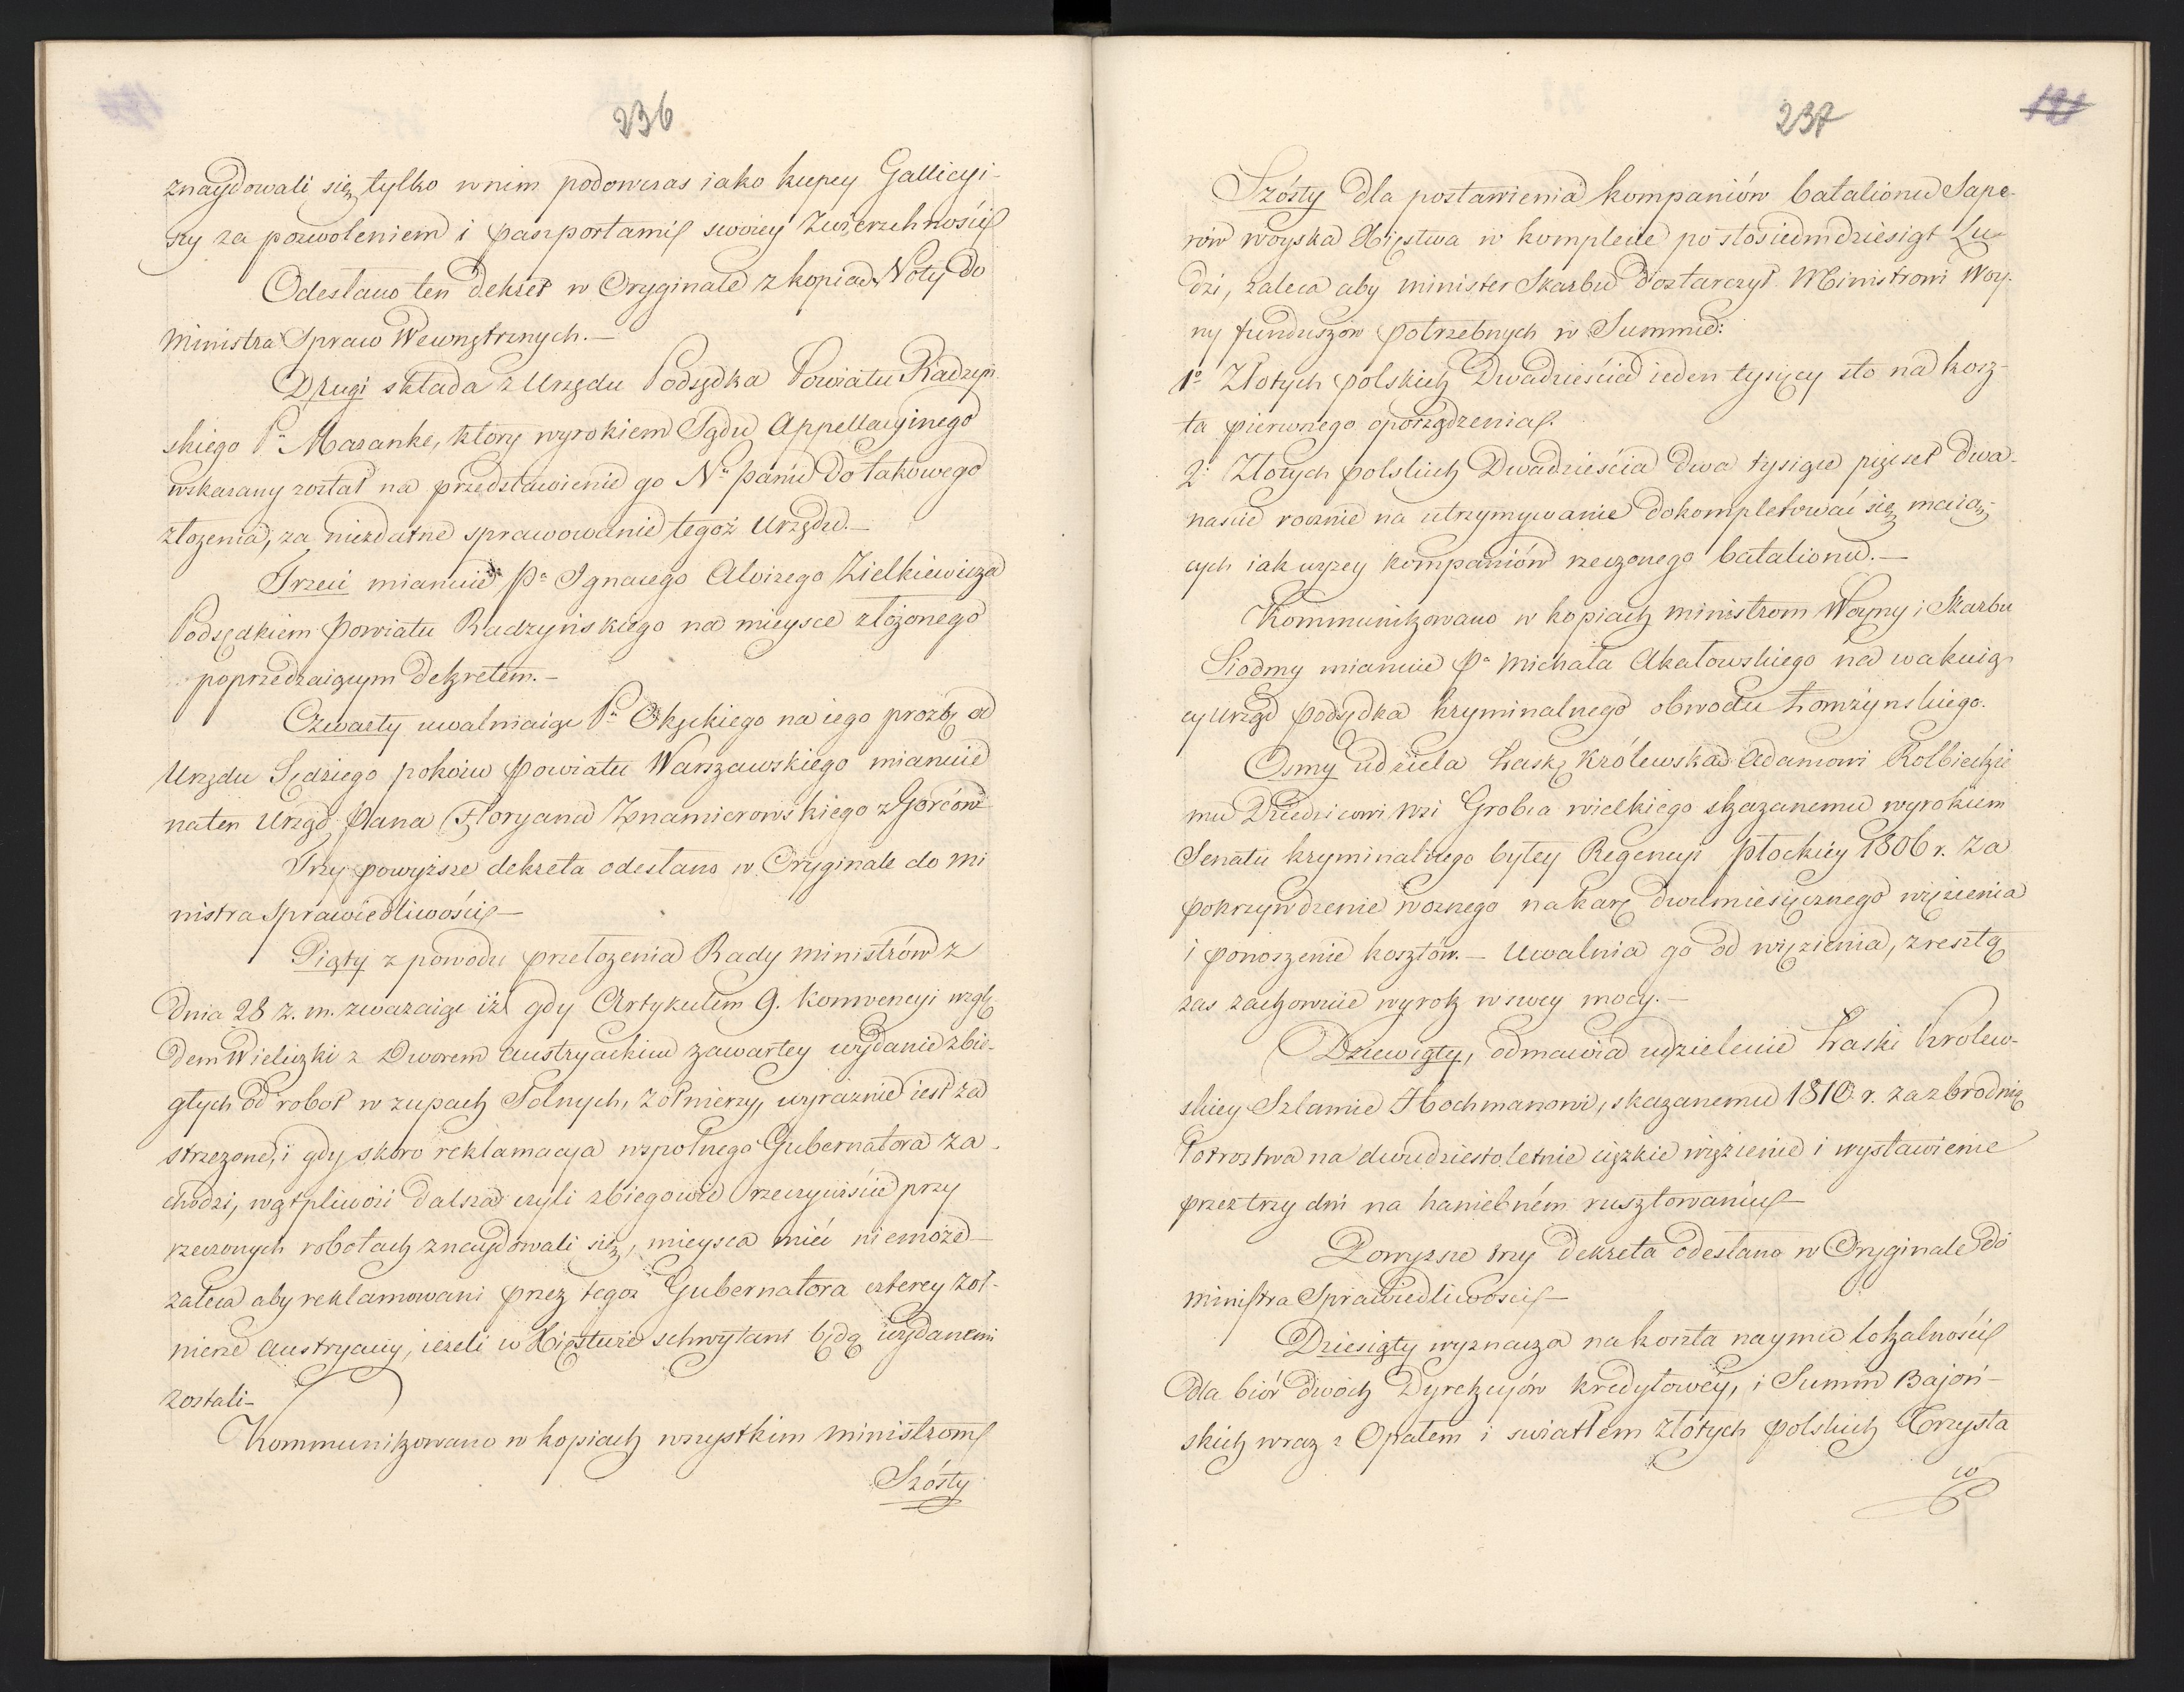 236
znaydowali się tylko w nim podowczas iako kupcy Gallicyi-
scy za pozwoleniem i paszportami swoiey Zwierzchności
Odesłano ten dekret w Oryginale z kopią Noty do
Ministra Spraw Wewnętrznych.—
Drugi składa z Urzędu Podsędka Powiatu Radzyń
skiego Pa Masanke, który wyrokiem Sądu Appellacyinego
wskazany został na przedstawienie go Nu panu do takowego
złożenia, za niezdatne sprawowanie tegoż Urzędu.—
Trzeci mianuie Pa Ignacego Aloizego Zielkiewicza
Podsędkiem Powiatu Radzyńskiego na mieysce złożonego
poprzedzaiącym dekretem.—
Czwarty uwalniaiąc Pa Okęckiego na iego prozbę od
Urzędu Sędziego pokoiu Powiatu Warszawskiego mianuie
na ten Urząd Pana Floryana Znamierowskiego z Gorców
Trzy powyższe dekreta odesłano w Oryginale do Mi
nistra Sprawiedliwości—
Piąty z powodu przełożenia Rady Ministrów z
Dnia 28 z. m. zważaiąc iż gdy Artykułem 9. Konwencyi wzglę
dem Wieliczki z Dworem Austryackim zawartey wydanie zbie-
głych od robot w żupach Solnych, żołnierzy, wyraznie iest za
strzeżone, i gdy skoro reklamacya wspólnego Gubernatora za-
chodzi, wątpliwość dalsza czyli zbiegowie rzeczywiście przy
rzeczonych robotach znaydowali się, mieysca mieć niemoże—
zaleca aby reklamowani przez tegoż Gubernatora czterey żoł-
nierze Austryaccy, ieżeli w Xięstwie schwytani będą wydanemi
zostali—
Kommunikowano w kopiach wszystkim Ministrom
Szósty
237
121
Szósty dla postawienia kompaniów batalionu Sape-
rów woyska Xięstwa w komplecie po stosiedmdziesiąt Lu-
dzi, zaleca aby Minister Skarbu dostarczył Ministrowi Woy-
ny funduszów potrzebnych w Summie:
1o Złotych polskich Dwadzieścia ieden tysięcy sto na kosz-
ta pierwnego oporządzenia.
2o Złotych polskich Dwadzieścia dwa tysiące pięset dwa-
naście rocznie na utrzymywanie dokompletować się maią-
cych iak wyżey kompaniów rzeczonego batalionu.—
Kommunikowano w kopiach Ministrom Woyny i Skarbu
Siodmy mianuie Pa Michała Akatowskiego na wakuią-
cy urząd podsędka kryminalnego obwodu Łomżynskiego.
Osmy udziela Łaskę Królewską Adamowi Kolbiedzie
mu Dziedzicowi Wsi Grobca wielkiego skazanemu wyrokiem
Senatu kryminalnego byłey Regencyi płockiey 1806 r. za
pokrzywdzenie woznego na karę dwumiesięcznego więzienia
i ponoszenie kosztów.— Uwalnia go od więzienia, zresztą
zas zachowuie wyrok w swey mocy.—
Dziewiąty, odmawia udzielenie Łaski Krolew-
skiey Szlamie Hochmanowi, skazanemu 1810. r. za zbrodnię
Łotrostwa na dwudziestoletnie ciężkie więzienie i wystawienie
przez trzy dni na haniebném rusztowaniu—
Powyższe trzy dekreta odesłano w Oryginale do
Ministra Sprawiedliwości—
Dziesiąty wyznacza na koszta naymu lokalności
dla biór dwóch Dyrekcyów kredytowey, i Summ Bajoń-
skich wraz z Opałem i swiatłem złotych polskich Trzysta